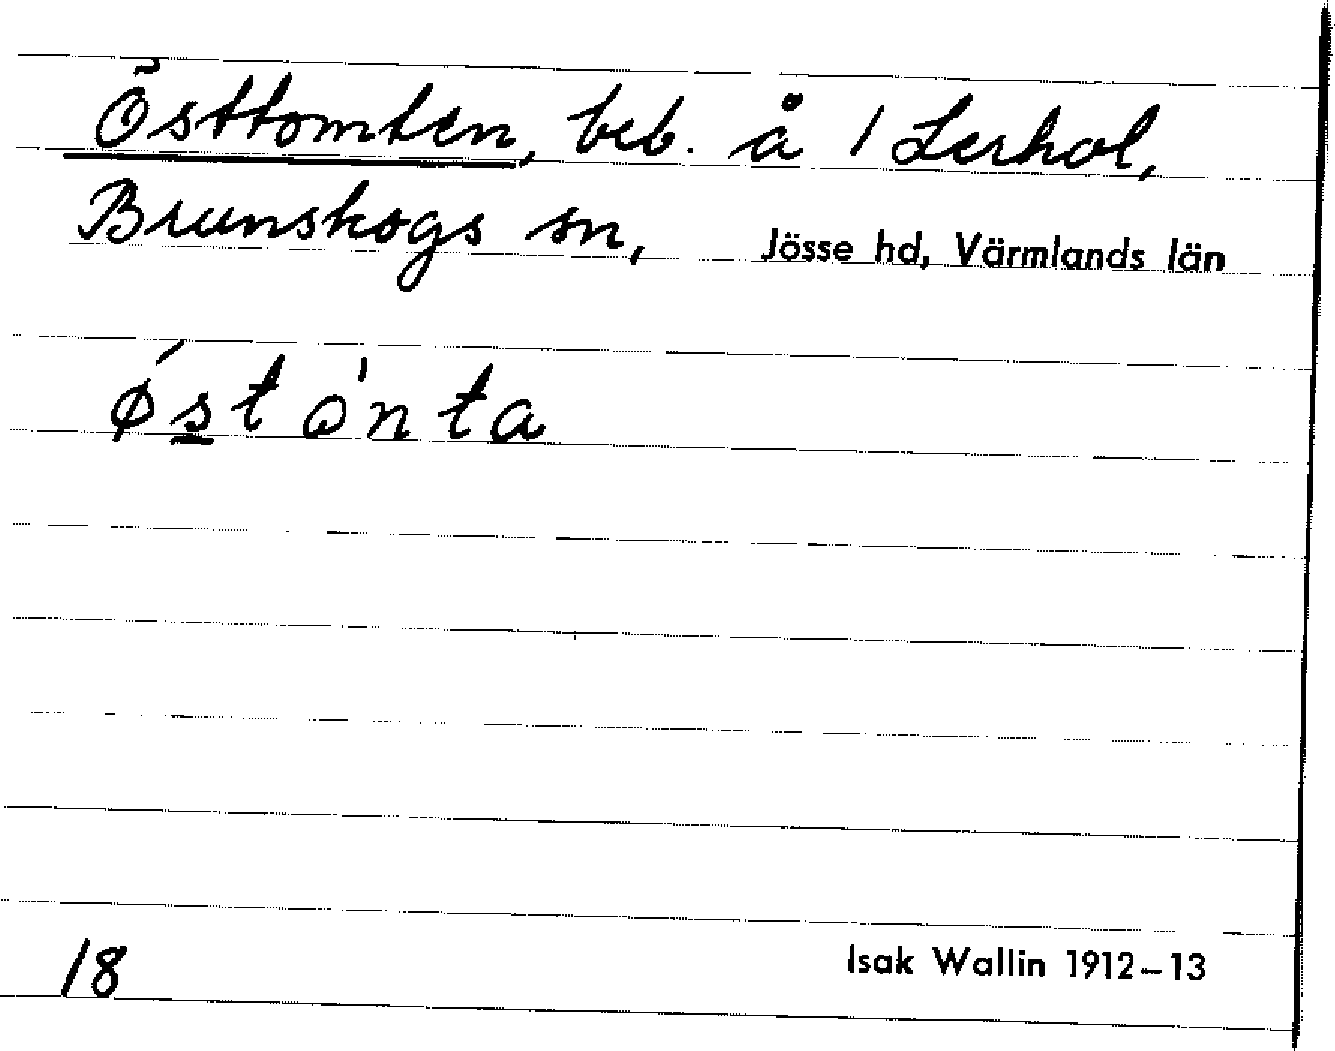 Östtomten, beb. å 1 Lerhol,
Brunskogs sn, Jösse hd, Värmlands län
ǿst ò̀nta
18
Isak Wallin 1912–13